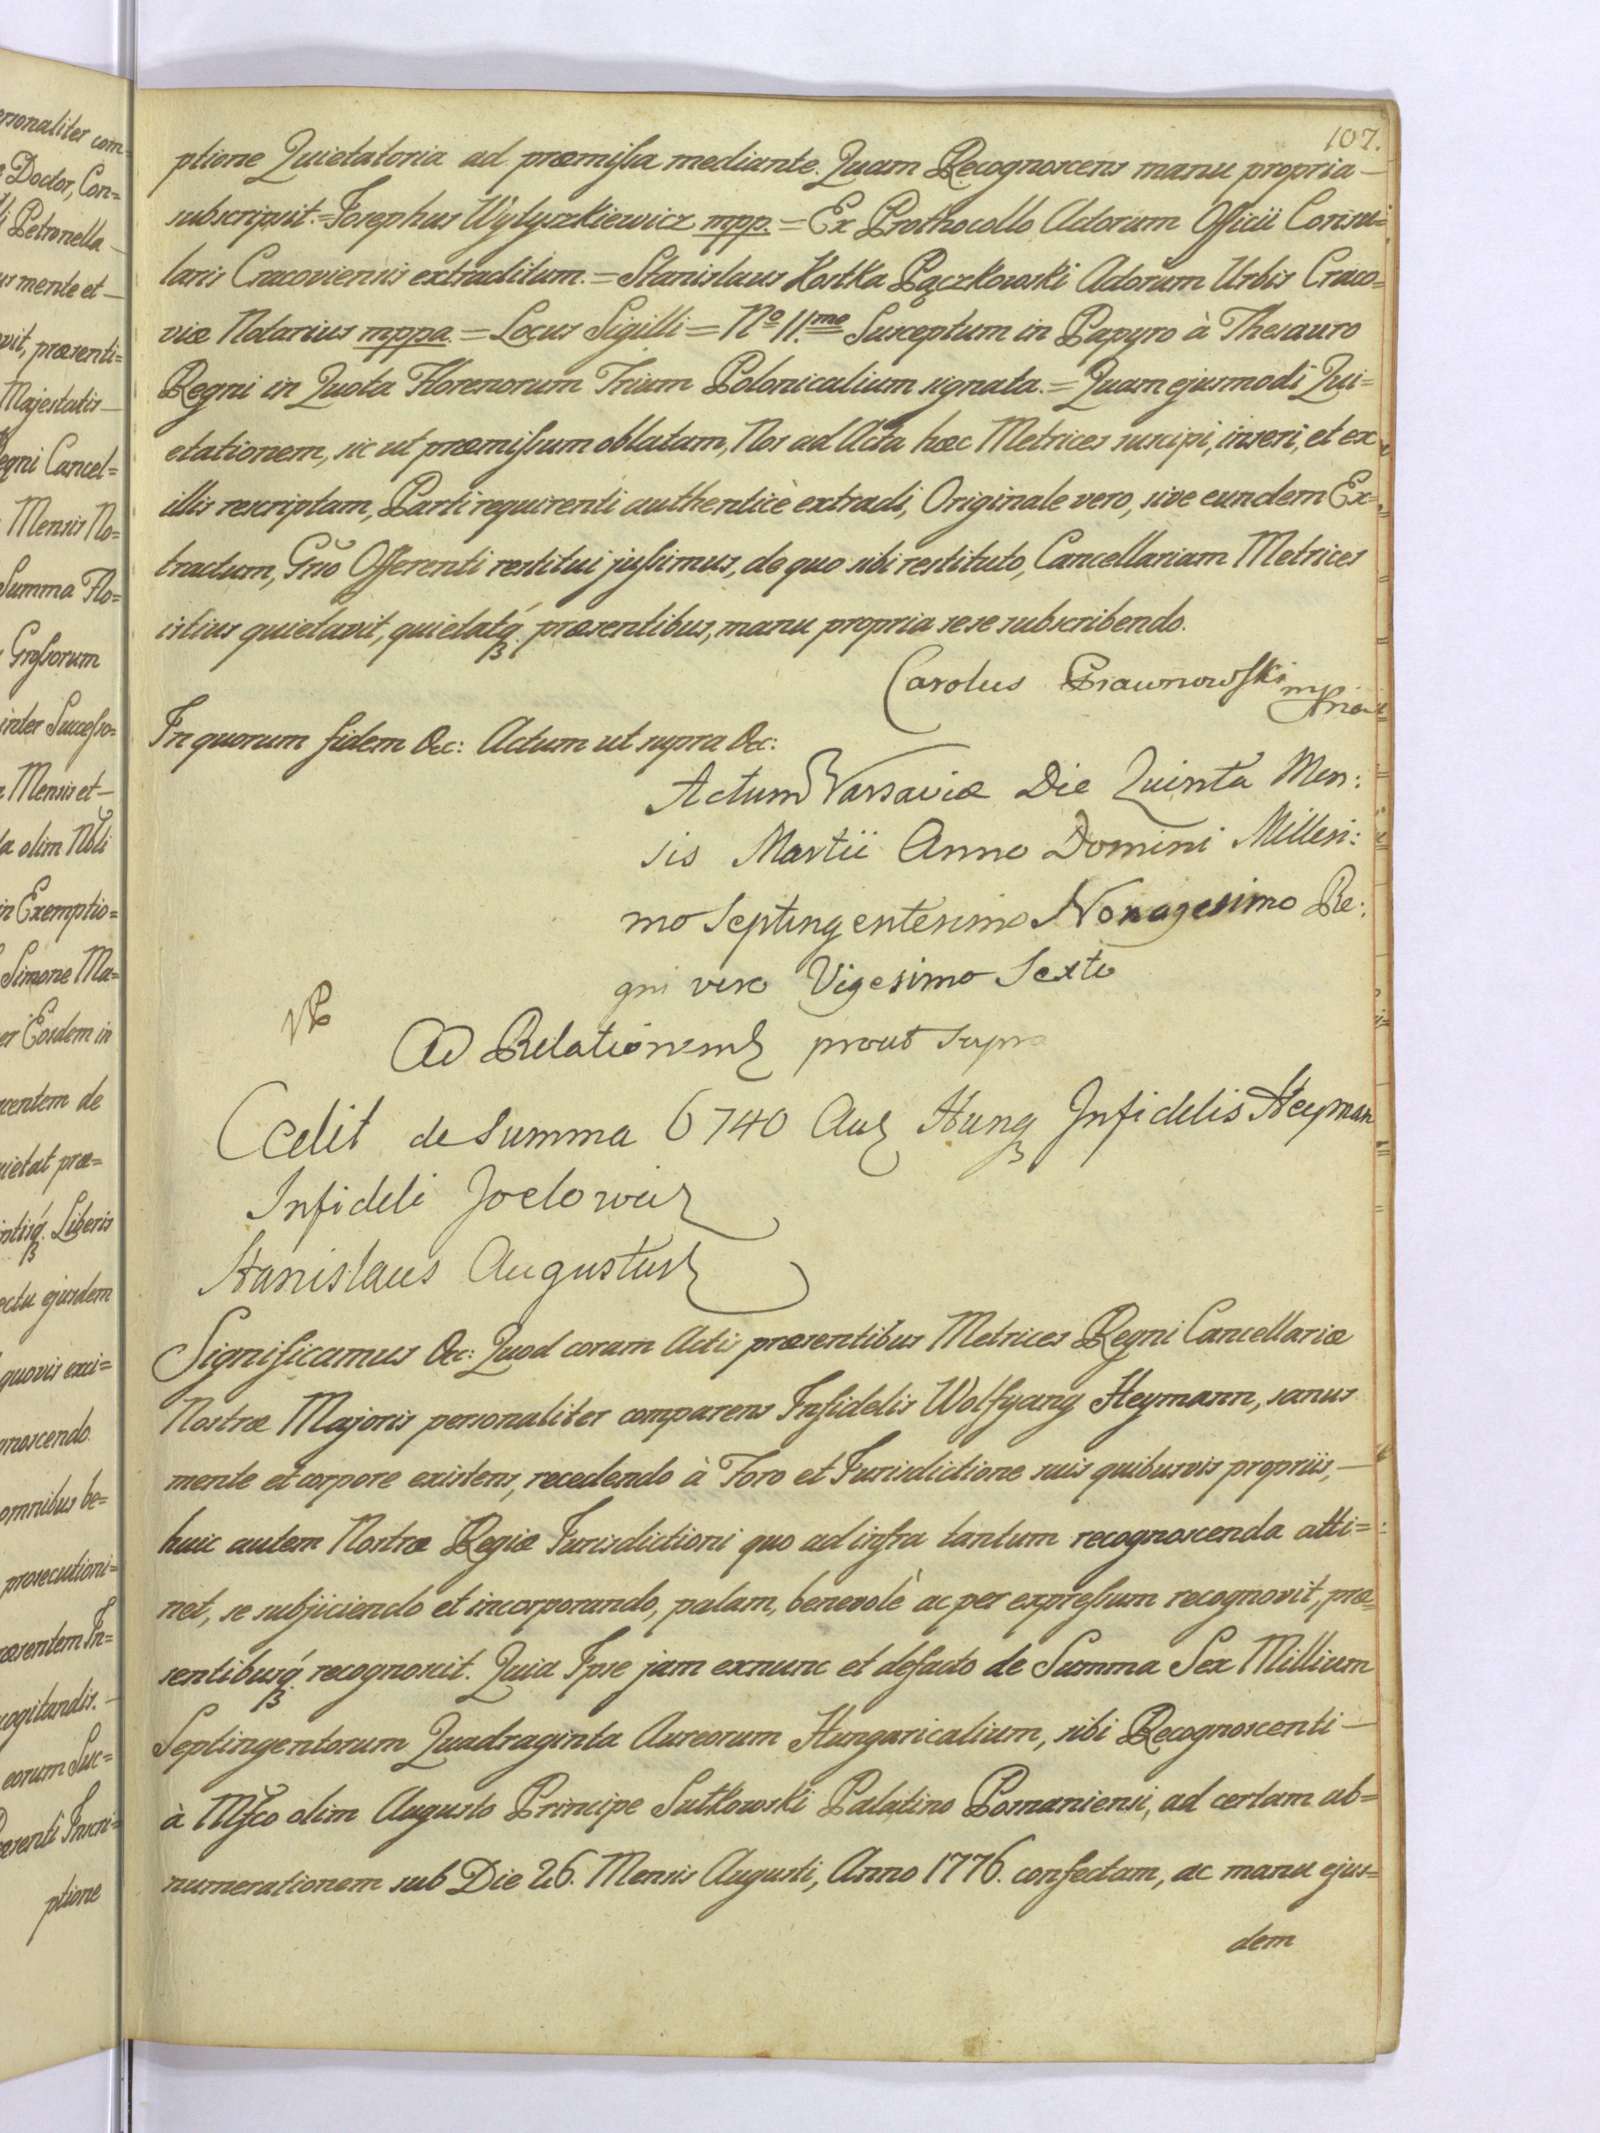 107.
ptione Quietatoria ad præmissa mediante. Quam Recognoscens manu propria —
subscripsit. = Josephus Wytyszkiewicz mpp. = Ex Prothocollo Actorum Officii Consu=
laris Cracoviensis extraditum. = Stanislaus Kostka Pączkowski Actorum Urbis Craco=
viæ Notarius mppa. = Locus Sigilli = No 11.mo Susceptum in Papyro à Thesauro
Regni in Quota Florenorum Trium Polonicalium signata. = Quam ejusmodi Qui=
etationem, sic ut præmissum oblatam, Nos ad Acta hæc Metrices suscipi, inseri, et ex
illis rescriptam, Parti requirenti authenticè extradi, Originale vero, sive eundem Ex=
tractum, Gno Offerenti restitui jussimus, de quo sibi restituto, Cancellariam Metrices
istius quietavit, quietatq præsentibus, manu propria sese subscribendo.
Carolus
In quorum fidem &c: Actum ut supra &c:
Actum Varsaviæ Die Quinta Men:
sis Martii Anno Domini Millesi:
mo Septingentesimo Nonagesimo Re:
gni vero Vigesimo Sexto
Ad Relationem prout supra
Cedit de Summa 6740 Au Hung Infidelis Heyman
Infideli Joelowicz
Stanislaus Augustus
Significamus &c: Quod coram Actis præsentibus Metrices Regni Cancellariæ
Nostræ Majoris personaliter comparens Infidelis Wolfgang Heymann, sanus
mente et corpore existens, recedendo à Foro et Jurisdictione suis quibusvis propriis, —
huic autem Nostræ Regiæ Jurisdictioni quo ad infra tantum recognoscenda atti=
net, se subjiciendo et incorporando, palam, benevolè ac per expressum recognovit, præ=
sentibusq recognoscit. Quia Ipse jam exnunc et defacto de Summa Sex Millium
Septingentorum Quadraginta Aureorum Hungaricalium, sibi Recognoscenti —
à Mfco olim Augusto Principe Sułkowski Palatino Posnaniensi, ad certam ab=
numerationem sub Die 26. Mensis Augusti, Anno 1776. confectam, ac manu ejus=
dem
ersonaliter com
Doctor, Con=
Petronella —
us mente et —
ovit, præsenti=
Majestatis —
egni Cancel=
Mensis No=
Summa Flo=
Grossorum
inter Successo=
Mensis et —
la olim Nobli
in Exemptio=
Simone Ma=
er Eosdem in
centem de
uietat præ=
ntisq. Liberis
ectu ejusdem
quovis exci=
gnoscendo.
omnibus be=
prosecutioni=
ræsentem In=
cogitandis. —
eorum Suc=
æsenti Inscri=
ptione